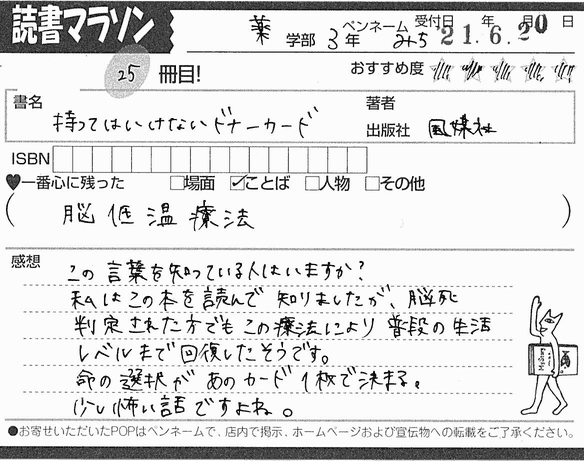 読書マラソン
薬 学部 3年 ペンネーム みち 受付日 年 月 日 21.6.20
25 冊目! おすすめ度
書名 持ってはいけないドナーカード 著者
出版社 風媒社
ISBN
♥一番心に残った □場面 ☑ことば □人物 □その他
(脳低温療法)
感想
この言葉を知っている人はいますか?
私はこの本を読んで知りましたが、脳死
判定された方でもこの療法により普段の生活
レベルまで回復したそうです。
命の選択があのカード1枚で決まる。
少し怖い話ですよね。
●お寄せいただいたPOPはペンネームで、店内で掲示、ホームページおよび宣伝物への転載をご了承ください。